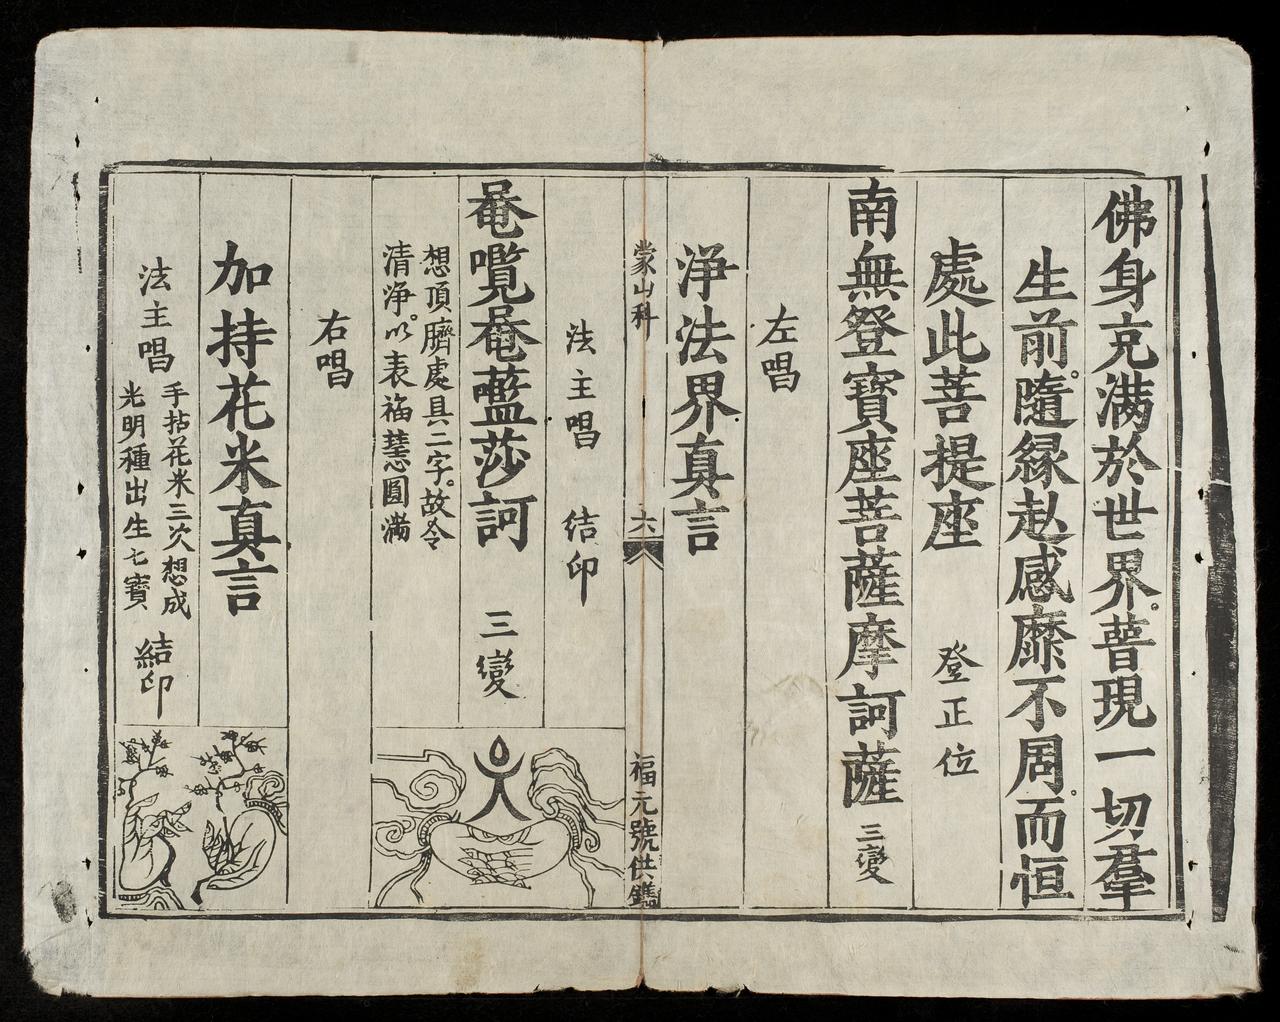 佛身充满於世界。普現一切羣
生前。隨緣赴感靡不周。而恒
處此菩提座 登正位
南無登寶座菩薩摩訶薩 三變
左唱
淨法界真言
蒙山科 六 福元號供鐫
法主唱 結印
唵嚂唵藍莎訶 三變
想頂臍處具二字。故令
清净。以表福慧圓滿
右唱
加持花米真言
法主唱 手拈花米三次想成
光明種出生七寶 結印